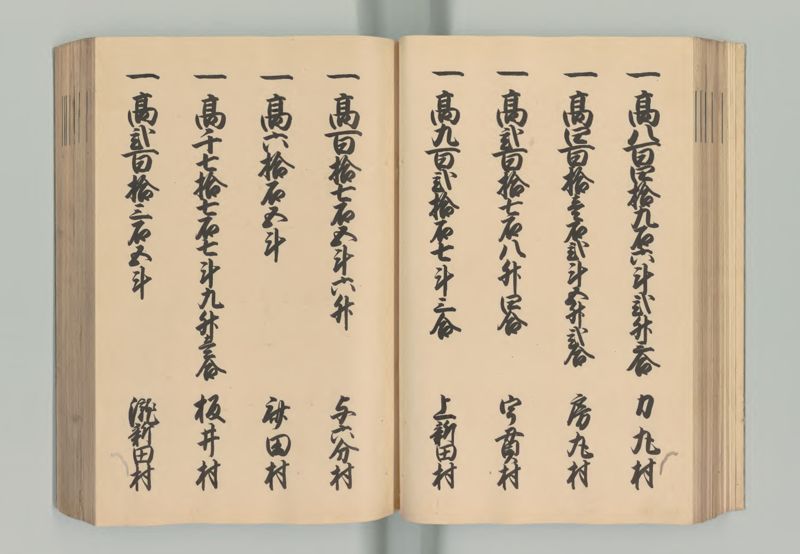 一高八百四拾九石六斗弐升三合 力丸村
一高四百拾壱石弐斗五升弐合 房丸村
一高弐百拾七石八升四合 宇貫村
一高九百弐拾石七斗三合 上新田村
一高百拾七石五斗六升 与六分村
一高六拾石五斗 田村
一高千七拾七石七斗九升三合 板井村
一高弐百拾三石五斗 瀧新田村